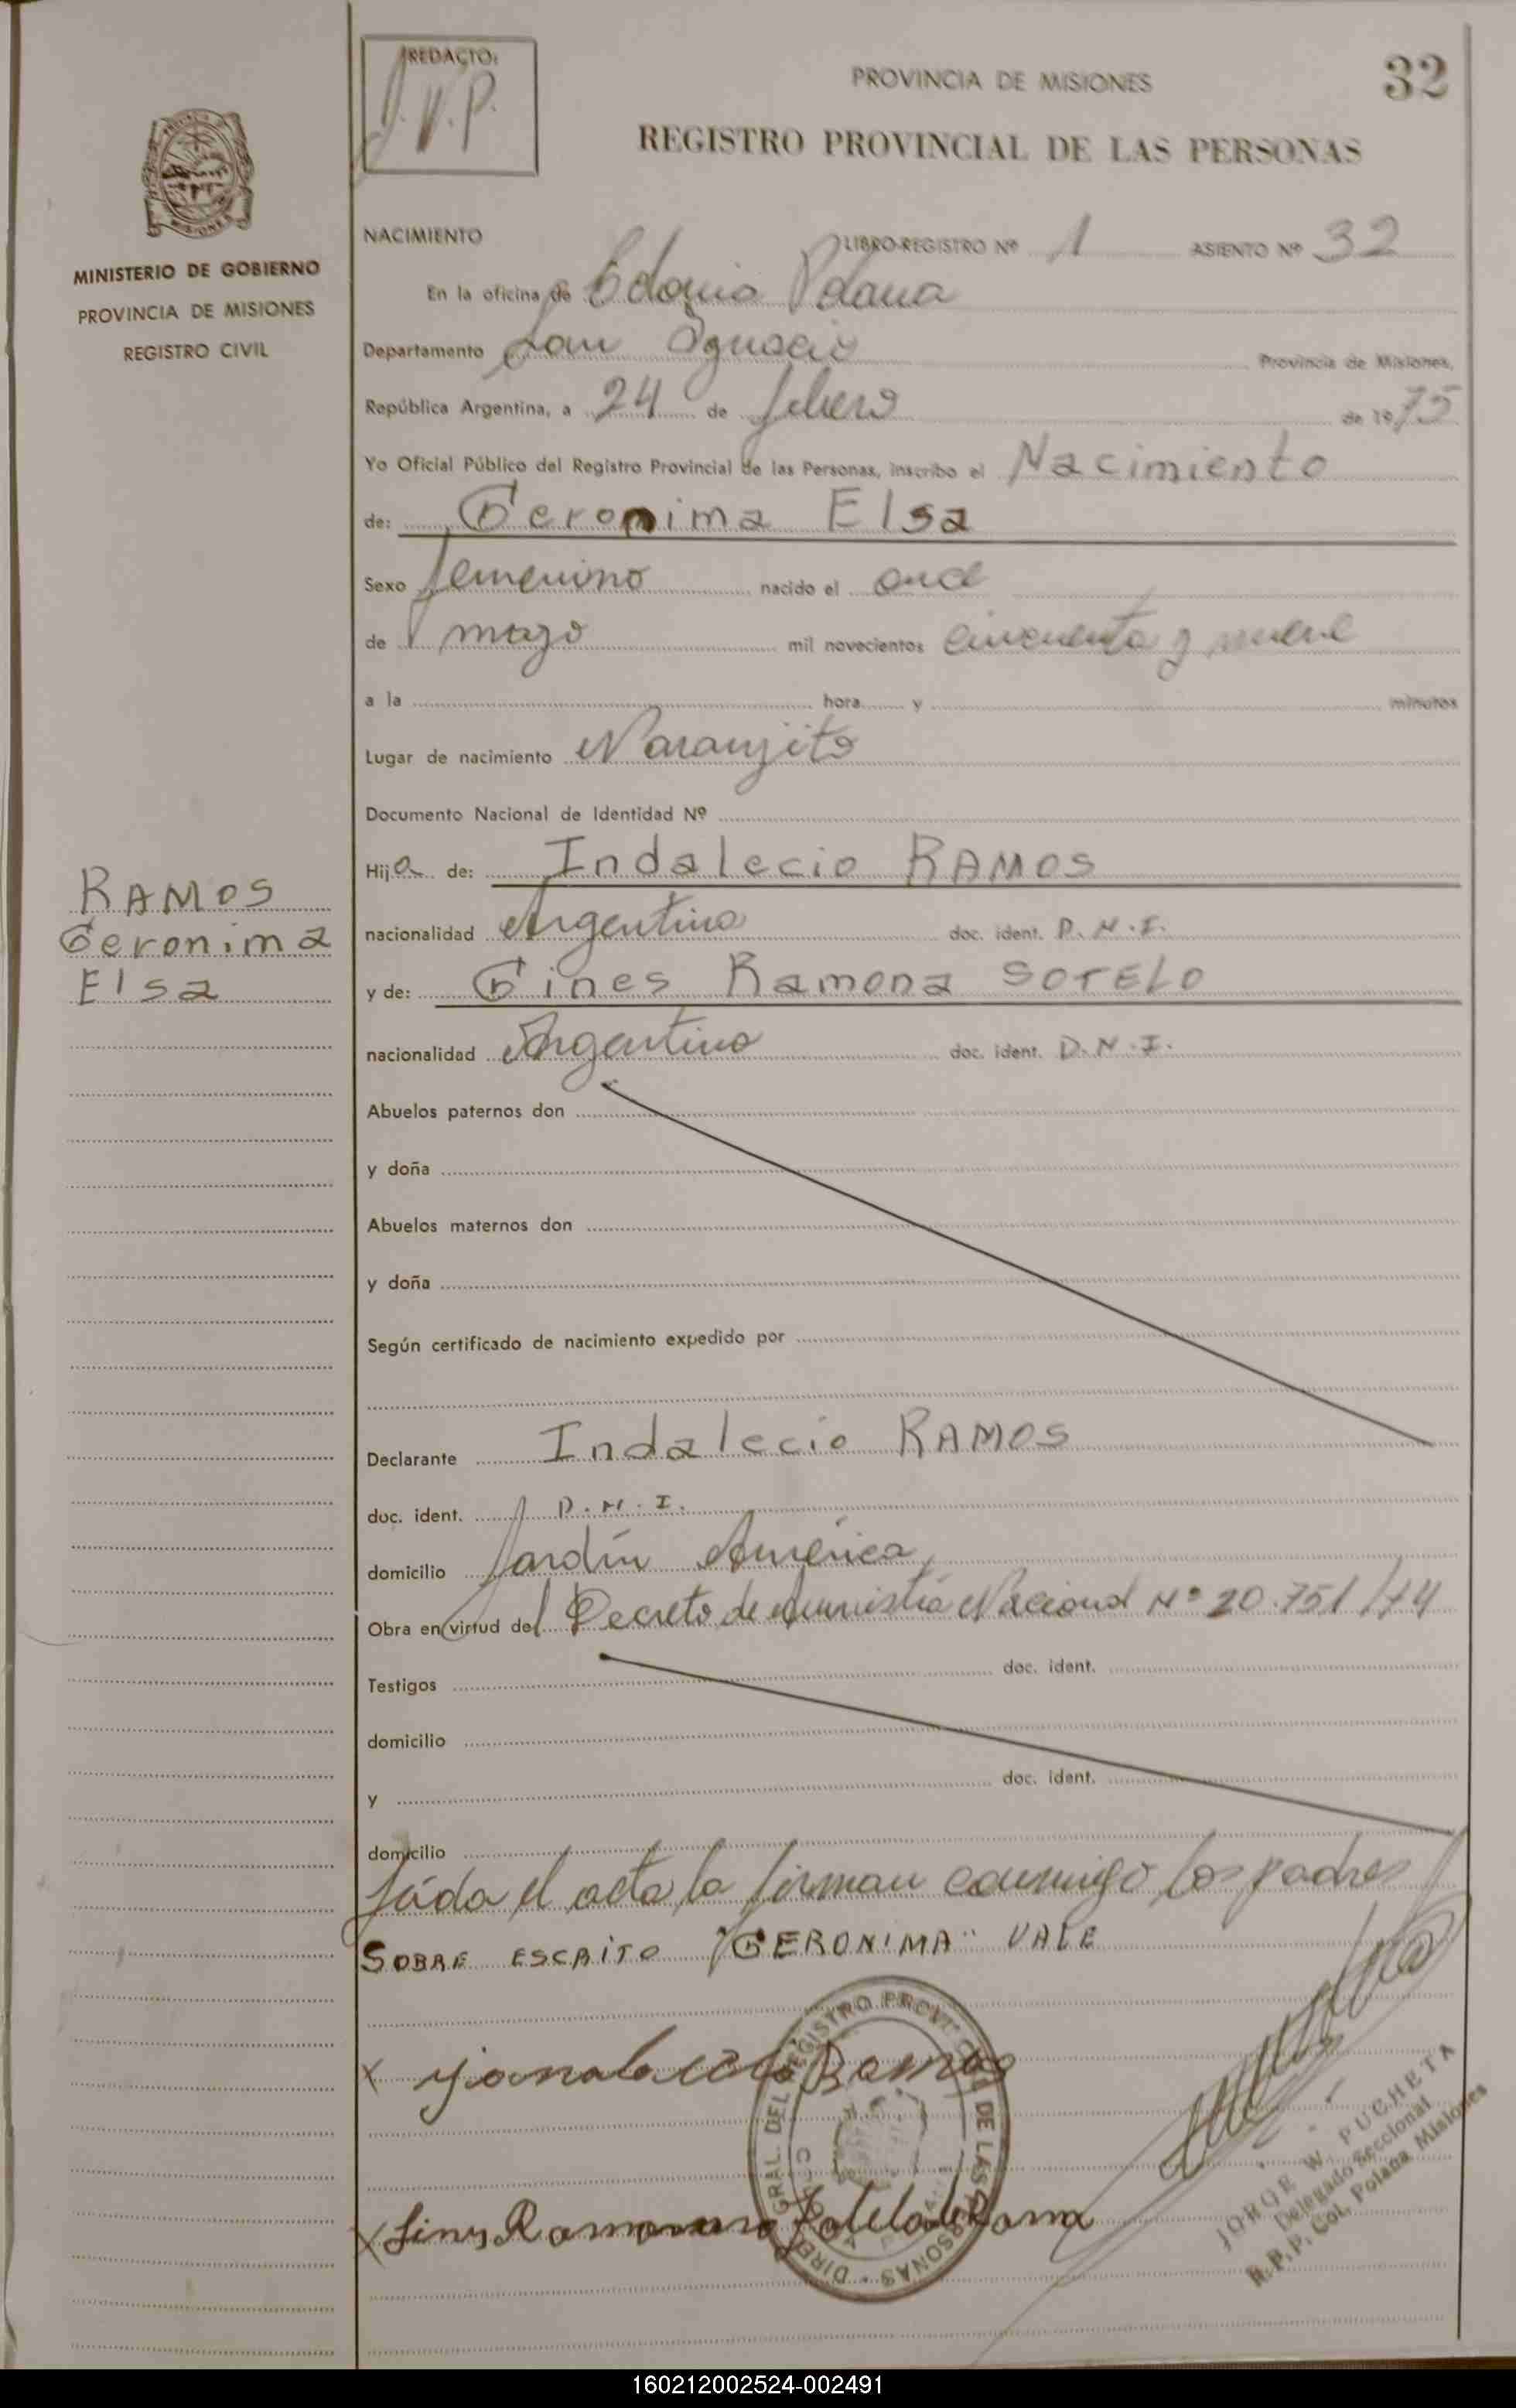 REDACTO:
J.V.P.
PROVINCIA DE MISIONES
32
REGISTRO PROVINCIAL DE LAS PERSONAS
MISIONES
MINISTERIO DE GOBIERNO
PROVINCIA DE MISIONES
REGISTRO CIVIL
NACIMIENTO LIBRO-REGISTRO Nº 1 ASIENTO Nº 32
En la oficina de Colonia Polana
Departamento San Ignacio Provincia de Misiones,
República Argentina, a 24 de febrero de 1975
Yo Oficial Público del Registro Provincial de las Personas, inscribo el Nacimiento
de: Geronima Elsa
Sexo femenino nacido el once
de mayo mil novecientos cincuenta y nueve
a la hora y minutos
Lugar de nacimiento Naranjito
Documento Nacional de Identidad Nº
Hija de: Indalecio RAMOS
RAMOS
Geronima
Elsa
nacionalidad Argentina doc. ident. D.N.I.
y de: Gines Ramona SOTELO
nacionalidad Argentina doc. ident. D.N.I.
Abuelos paternos don
y doña
Abuelos maternos don
y doña
Según certificado de nacimiento expedido por
Declarante Indalecio RAMOS
doc. ident. D.N.I.
domicilio Jardín América
Obra en virtud del Decreto de Amnistía Nacional Nº 20.751/74
Testigos doc. ident.
domicilio
y doc. ident.
domicilio
Leída el acta la firman conmigo los padres
SOBRE ESCRITO "GERONIMA" VALE
x Indalecio Ramos
DIREC. GRAL. DEL REGISTRO PROVINCIAL DE LAS PERSONAS
JORGE W. PUCHETA
Delegado Seccional
R.P.P. Col. Polana Misiones
x Gines Ramona Sotelo de Rama
160212002524-002491